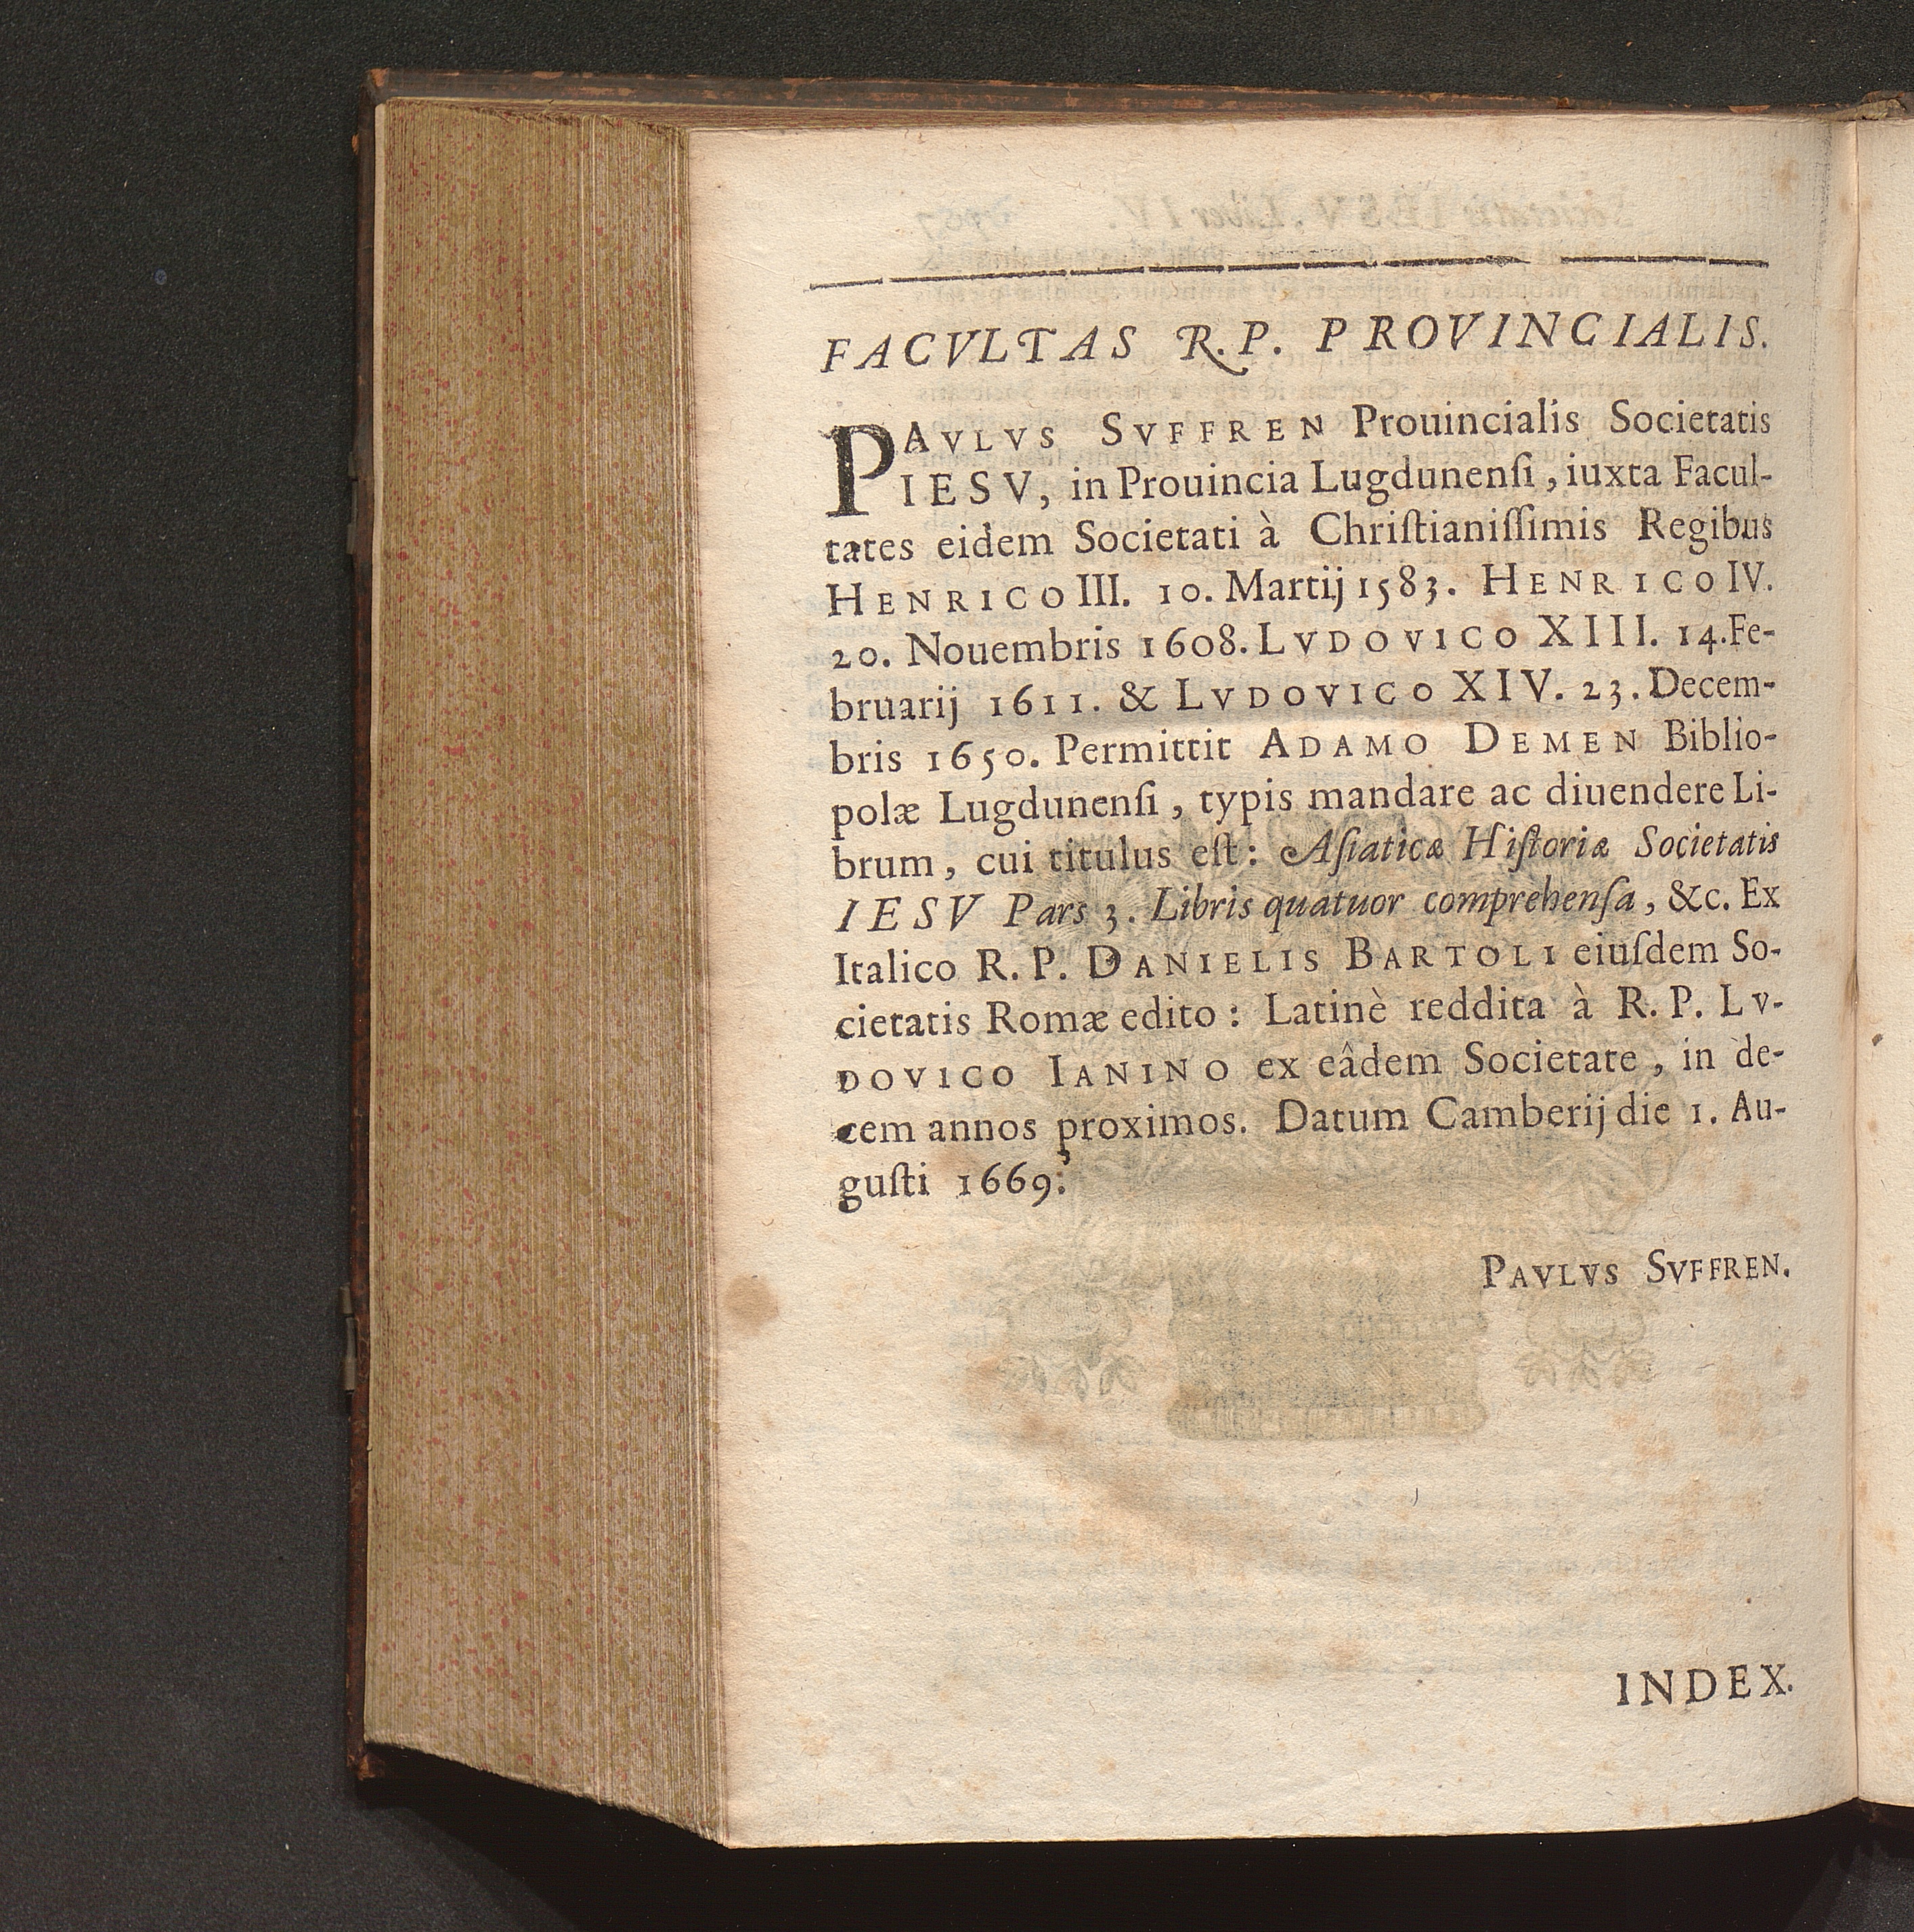 FACVLTAS R.P. PROVINCIALIS.
PAVLVS SVFFREN Prouincialis Societatis
IESV, in Prouincia Lugdunenſi, iuxta Facul-
tates eidem Societati à Chriſtianiſſimis Regibus
HENRICO III. 10. Martij 1583. HENRICO IV.
20. Nouembris 1608. LVDOVICO XIII. 14. Fe-
bruarij 1611. & LVDOVICO XIV. 23. Decem-
bris 1650. Permittit ADAMO DEMEN Biblio-
polæ Lugdunenſi, typis mandare ac diuendere Li-
brum, cui titulus eſt: Aſiaticæ Hiſtoriæ Societatis
IESV Pars 3. Libris quatuor comprehenſa, &c. Ex
Italico R. P. DANIELIS BARTOLI eiuſdem So-
cietatis Romæ edito: Latinè reddita à R. P. LV-
DOVICO IANINO ex eâdem Societate, in de-
cem annos proximos. Datum Camberij die 1. Au-
guſti 1669.
PAVLVS SVFFREN.
INDEX.